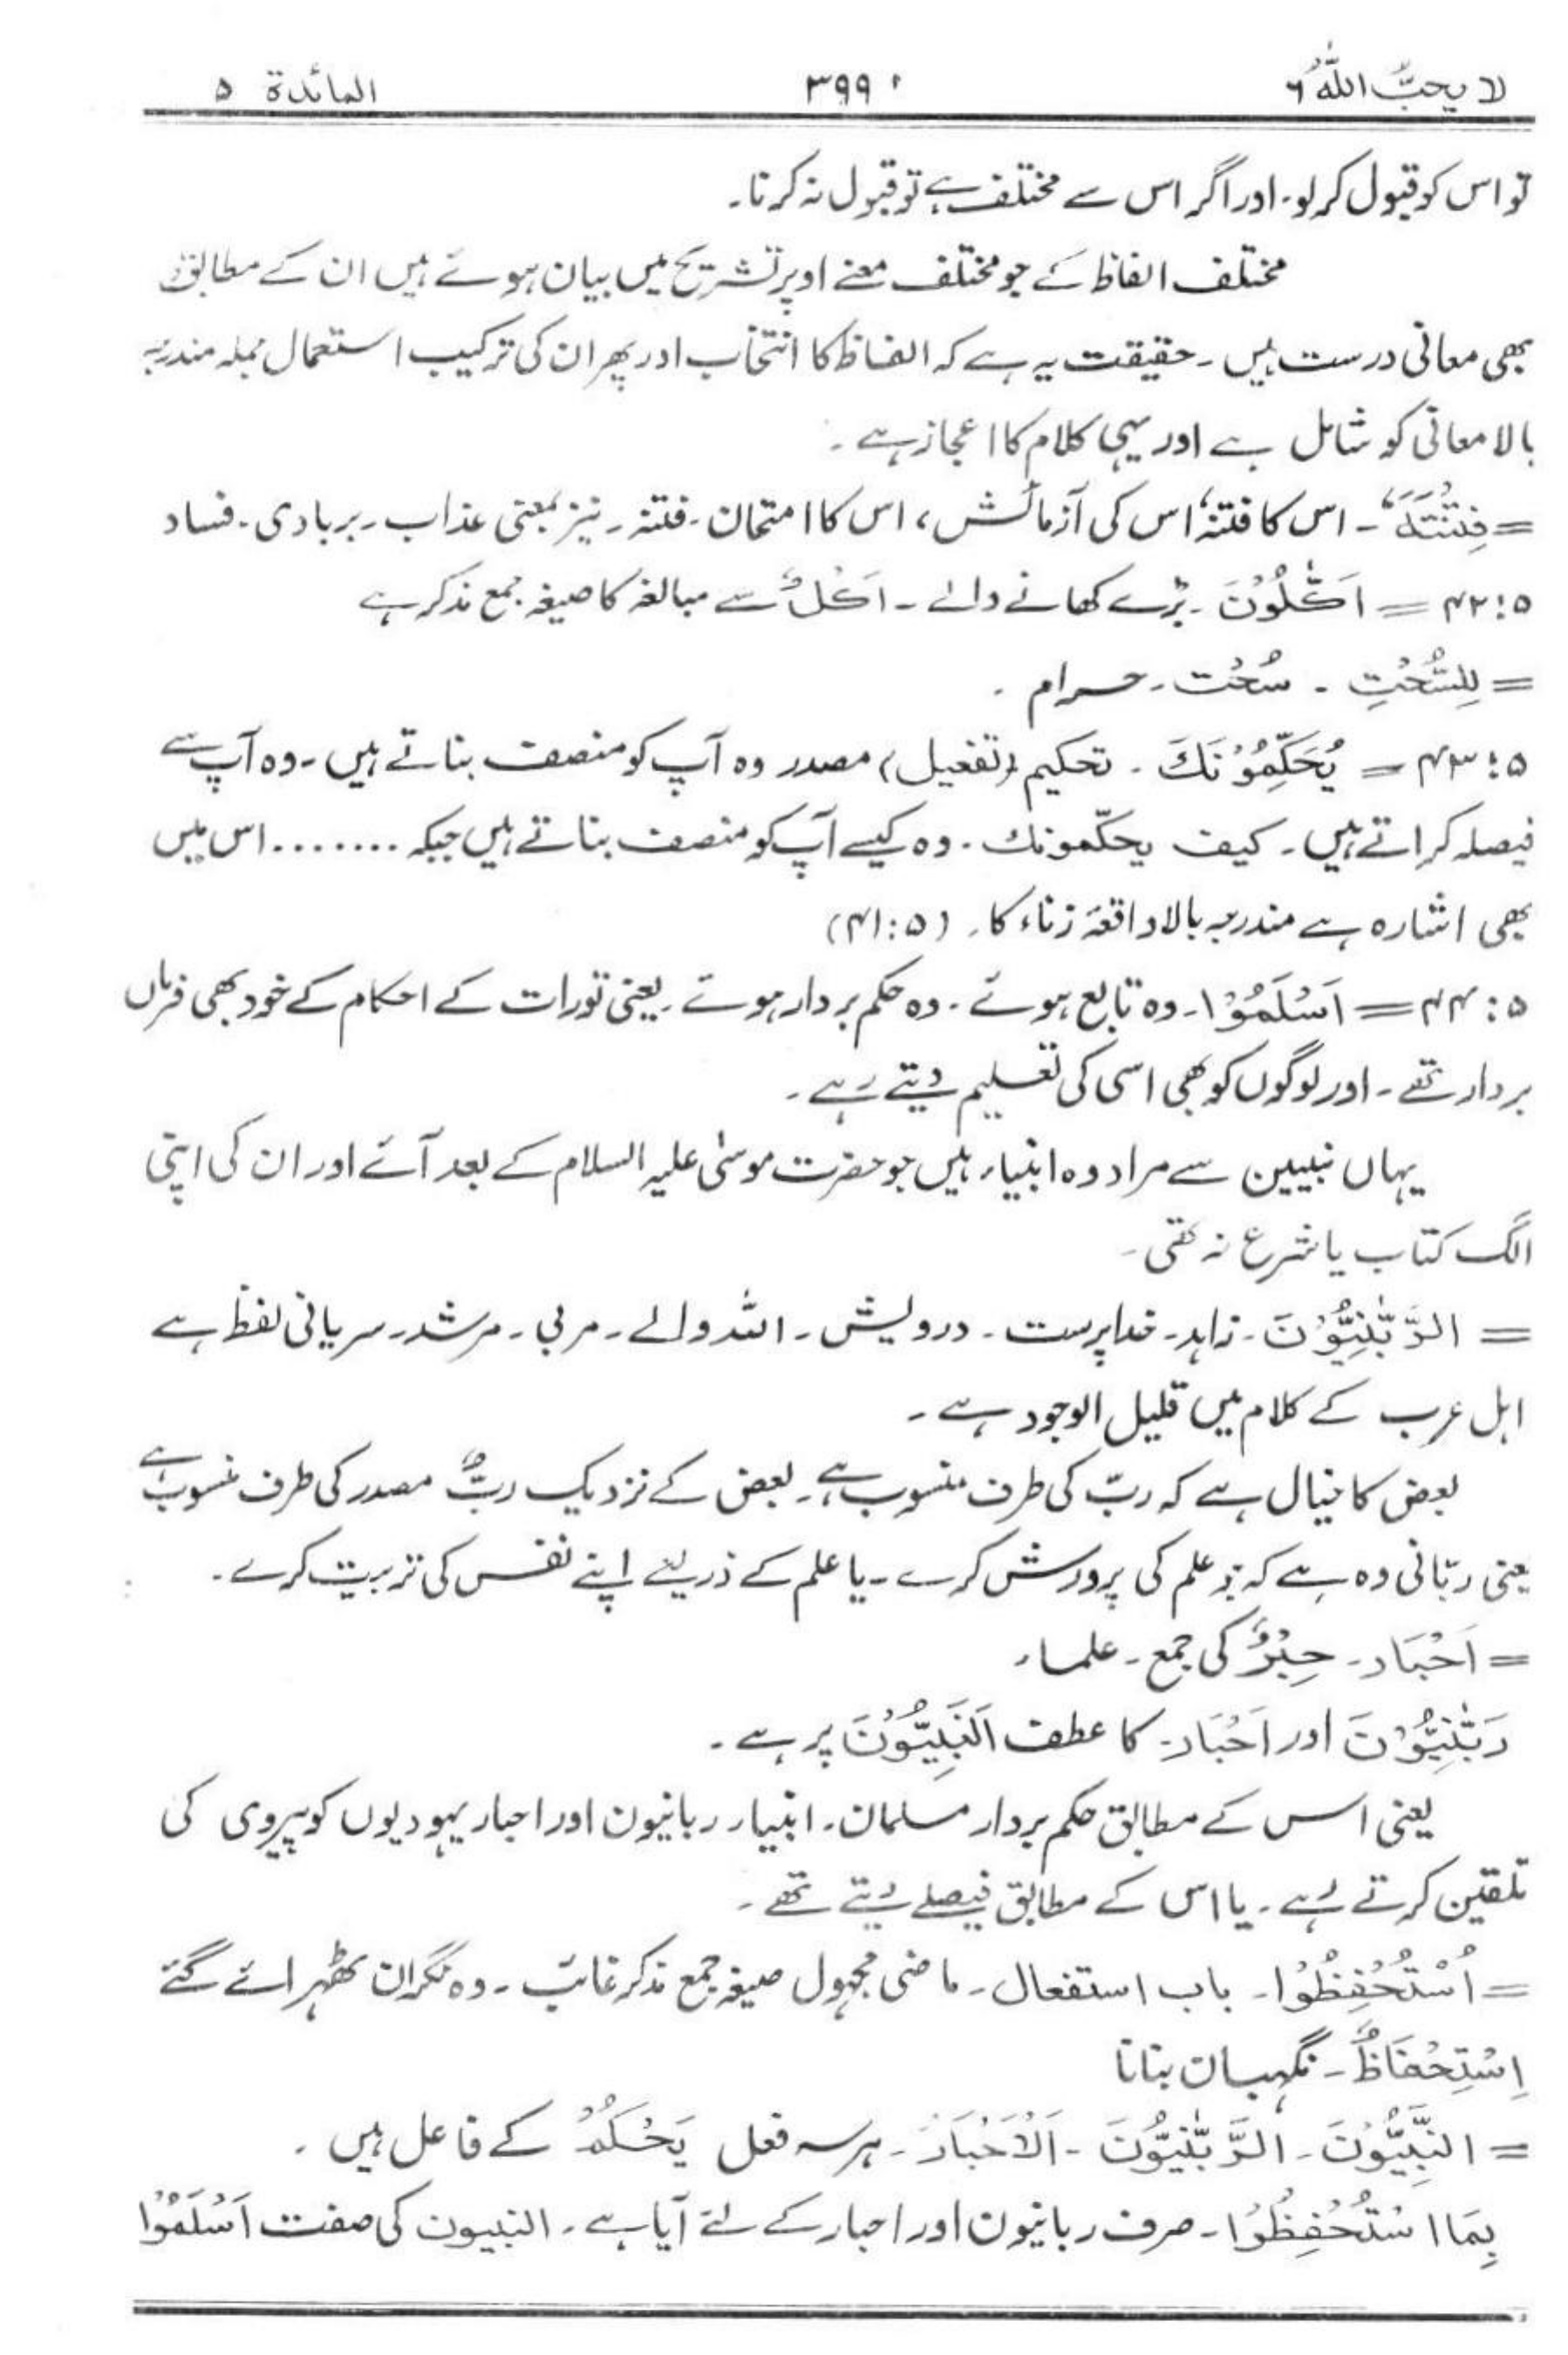 لا یحبّ اللّٰہُ ٦ ٣٩٩ المائدۃ ٥
تو اس کو قبول کرلو۔ اور اگر اس سے مختلف ہے تو قبول نہ کرنا۔
مختلف الفاظ کے جو مختلف معنے اوپر تشریح میں بیان ہوئے ہیں ان کے مطابق
بھی معانی درست ہیں۔ حقیقت یہ ہے کہ الفاظ کا انتخاب اور پھر ان کی ترکیب استعمال جملہ مندرجہ
بالا معانی کو شامل ہے اور یہی کلام کا اعجاز ہے۔
= فِتْنَتَہٗ۔ اس کا فتنہ، اس کی آزمائش، اس کا امتحان۔ فتنہ۔ نیز بمعنی عذاب۔ بربادی۔ فساد
٥:٤٢ = اَکّٰلُوْنَ۔ بڑے کھانے والے۔ اَکْلٌ سے مبالغہ کا صیغہ جمع مذکر ہے
= لِلسُّحْتِ۔ سُحْت۔ حرام۔
٥:٤٣ = یُحَکِّمُوْنَکَ۔ تحکیم (تفعیل) مصدر وہ آپ کو منصف بناتے ہیں۔ وہ آپ سے
فیصلہ کراتے ہیں۔ کیف یحکّمونک۔ وہ کیسے آپ کو منصف بناتے ہیں جبکہ ........ اس میں
بھی اشارہ ہے مندرجہ بالا واقعۂ زناء کا۔ (٥:٤١)
٥:٤٤ = اَسْلَمُوْا۔ وہ تابع ہوئے۔ وہ حکم بردار ہوئے۔ یعنی تورات کے احکام کے خود بھی فرماں
بردار تھے۔ اور لوگوں کو بھی اسی کی تعلیم دیتے رہے۔
یہاں نبیین سے مراد وہ انبیاء ہیں جو حضرت موسٰی علیہ السلام کے بعد آئے اور ان کی اپنی
الگ کتاب یا شرع نہ تھی۔
= الرَّبّٰنِیُّوْنَ۔ زاہد۔ خدا پرست۔ درویش۔ اللہ والے۔ مربی۔ مرشد۔ سریانی لفظ ہے
اہل عرب کے کلام میں قلیل الوجود ہے۔
بعض کا خیال ہے کہ ربّ کی طرف منسوب ہے۔ بعض کے نزدیک ربٌّ مصدر کی طرف منسوب ہے
یعنی ربّانی وہ ہے کہ جو علم کی پرورش کرے۔ یا علم کے ذریعے اپنے نفس کی تربیت کرے۔
= اَحْبَار۔ حِبْرٌ کی جمع۔ علماء
رَبّٰنِیُّوْنَ اور اَحْبَار۔ کا عطف اَلنَّبِیُّوْنَ پر ہے۔
یعنی اس کے مطابق حکم بردار مسلمان۔ انبیاء۔ ربانیون اور احبار یہودیوں کو پیروی کی
تلقین کرتے رہے۔ یا اس کے مطابق فیصلے دیتے تھے۔
= اُسْتُحْفِظُوْا۔ باب استفعال۔ ماضی مجہول صیغہ جمع مذکر غائب۔ وہ نگران ٹھہرائے گئے
اِسْتِحْفَاظٌ۔ نگہبان بنانا
= النَّبِیُّوْنَ۔ الرَّبّٰنِیُّوْنَ۔ اَلْاَحْبَارُ۔ ہر سہ فعل یَحْکُمُ کے فاعل ہیں۔
بِمَا اسْتُحْفِظُوْا۔ صرف ربانیون اور احبار کے لئے آیا ہے۔ النبیون کی صفت اَسْلَمُوْا